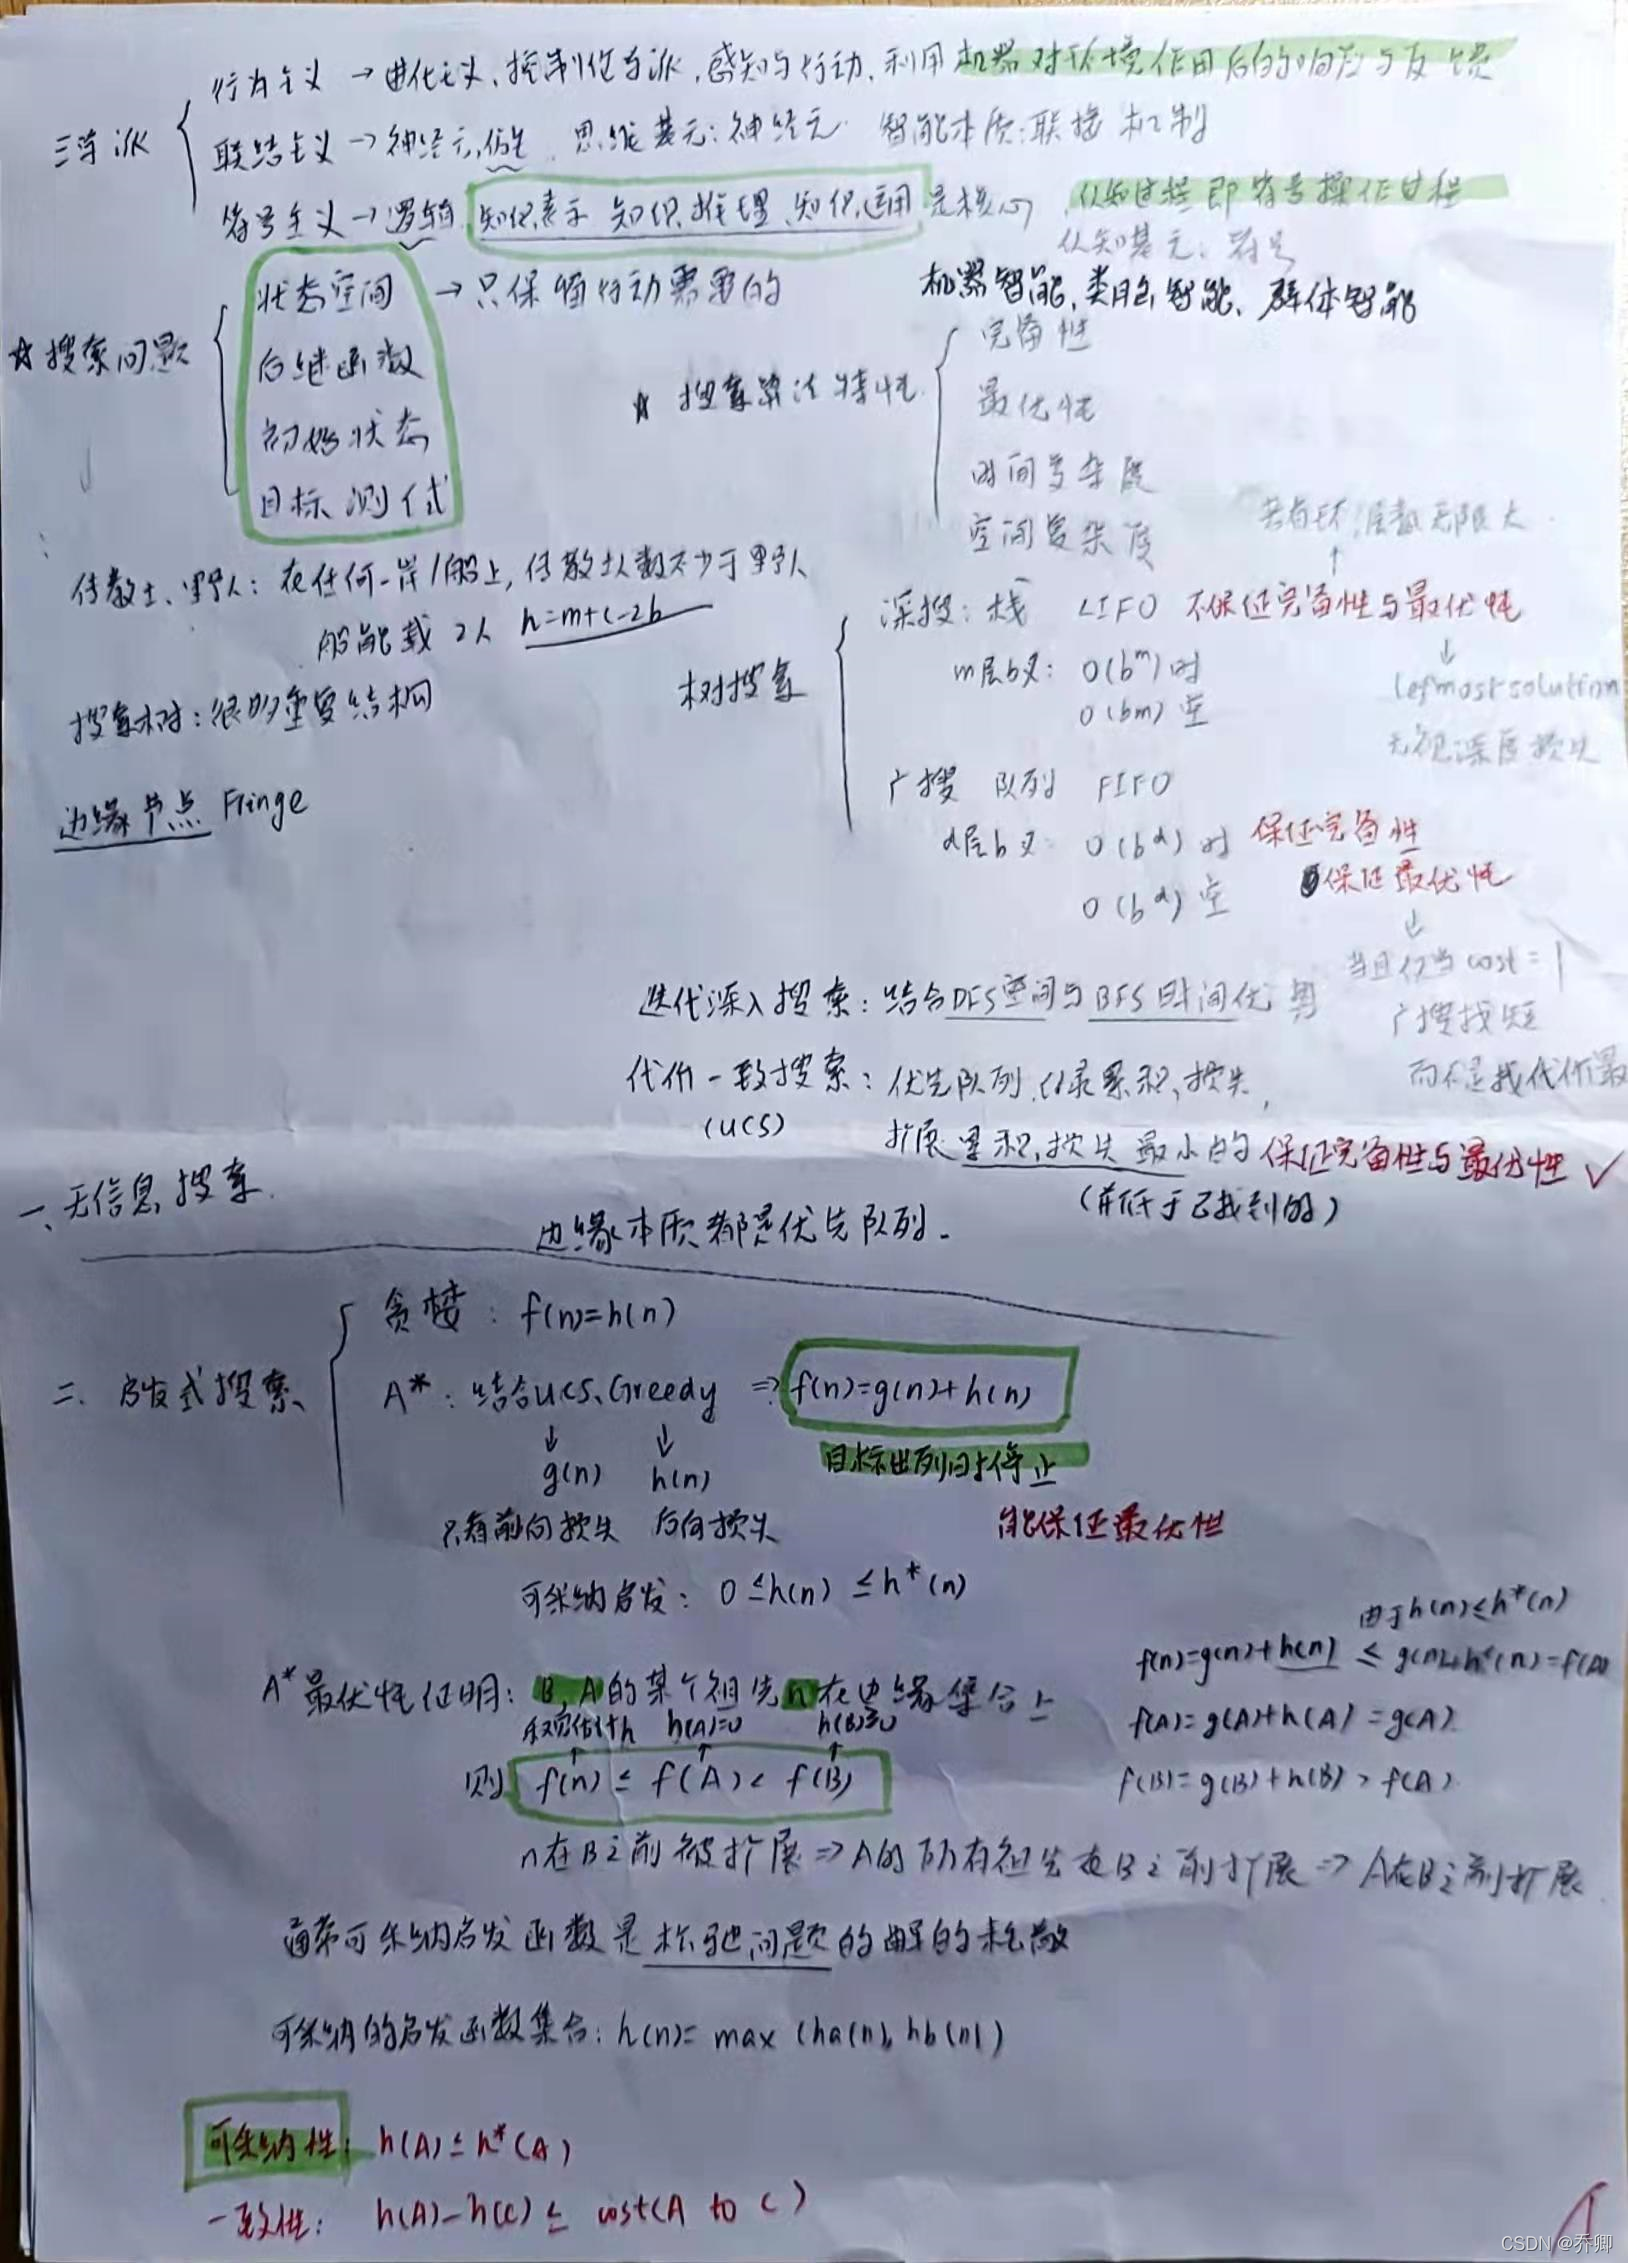 三学派
行为主义 → 进化主义、控制论学派，感知与行动，利用机器对环境作用后的响应与反馈
联结主义 → 神经元，仿生，思维基元：神经元 智能本质：联接机制
符号主义 → 逻辑，知识表示、知识推理、知识运用是核心，认知过程即符号操作过程
认知基元：符号
机器智能，类脑智能、群体智能
☆搜索问题
状态空间 → 只保留行动需要的
后继函数
初始状态
目标测试
☆ 搜索算法特性
完备性
最优性
时间复杂度
空间复杂度
传教士、野人：在任何一岸/船上，传教士人数不少于野人
船能载2人 h=m+c-2b
搜索树：很多重复结构
边缘节点 Fringe
树搜索
若有环，层数无限大
深搜：栈 LIFO 不保证完备性与最优性
m层b叉：O(b^m) 时
O(bm) 空
leftmost solution
无视深度损失
广搜 队列 FIFO
d层b叉：O(b^d) 时 保证完备性
O(b^d) 空 保证最优性
当且仅当cost=1
广搜找短
而不是找代价最
迭代深入搜索：结合DFS空间与BFS时间优势
代价一致搜索：优先队列，记录累积损失，
(UCS)
扩展累积损失最小的 保证完备性与最优性 ✓
(并低于已找到的)
一、无信息搜索
边缘本质都是优先队列.
二、启发式搜索
贪婪：f(n)=h(n)
A*：结合UCS、Greedy ⇒ f(n)=g(n)+h(n)
↓ ↓
g(n) h(n)
目标出列时停止
只有前向损失 后向损失
能保证最优性
可采纳启发：0≤h(n)≤h*(n)
A*最优性证明：B，A的某个祖先n在边缘集合上
h(A)=0 h(B)≥0
则 f(n) ≤ f(A) < f(B)
由于h(n)≤h*(n)
f(n)=g(n)+h(n) ≤ g(n)+h*(n)=f(A)
f(A)=g(A)+h(A)=g(A)
f(B)=g(B)+h(B)>f(A)
n在B之前被扩展⇒A的所有祖先在B之前扩展⇒A在B之前扩展
通常可采纳启发函数是松弛问题的解的耗散
可采纳的启发函数集合：h(n)= max (ha(n), hb(n))
可采纳性：h(A)≤h*(A)
一致性：h(A)-h(C)≤ cost(A to C)
CSDN @乔卿